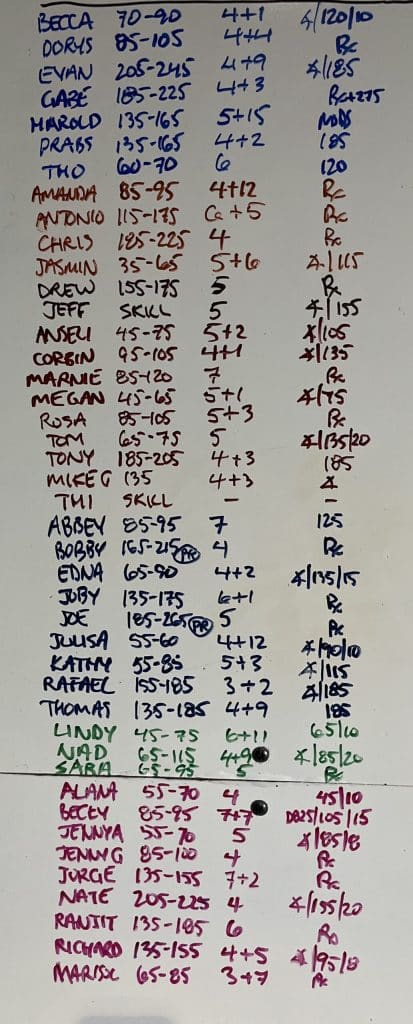 BECCA 70-90 4+1 ∡/120/10
DORYS 85-105 4+4 Rx
EVAN 205-245 4+9 ∡/185
GABE 185-225 4+3 Rx+275
HAROLD 135-165 5+15 MODS
PRABS 135-165 4+2 185
THO 60-70 6 120
AMANDA 85-95 4+12 Rx
ANTONIO 115-175 6+5 Rx
CHRIS 185-225 4 Rx
JASMIN 35-65 5+6 ∡/115
DREW 155-175 5 Rx
JEFF SKILL 5 ∡/155
ANSELI 45-75 5+2 ∡/105
CORBIN 95-105 4+1 ∡/135
MARNIE 85-120 7 Rx
MEGAN 45-65 5+1 ∡/75
ROSA 85-105 5+3 Rx
TOM 65-75 5 ∡/135/20
TONY 185-205 4+3 185
MIKE G 135 4+3 ∡
THI SKILL - -
ABBEY 85-95 7 125
BOBBY 165-215 PR 4 Rx
EDNA 65-90 4+2 ∡/135/15
JOBY 135-175 6+1 Rx
JOE 185-265 PR 5 Rx
JULISA 55-60 4+12 ∡/90/10
KATHY 55-85 5+3 ∡/115
RAFAEL 155-185 3+2 ∡/185
THOMAS 135-185 4+9 185
LINDY 45-75 6+11 65/10
NAD 65-115 4+9 ∡/85/20
SARA 65-95 5 Rx
ALANA 55-70 4 45/10
BECKY 85-95 7+7 DB25/105/15
JENNYA 55-70 5 ∡/85/8
JENNY G 85-100 4 Rx
JORGE 135-155 7+2 Rx
NATE 205-225 4 ∡/135/20
RANJIT 135-185 6 Rx
RICHARD 135-155 4+5 ∡/95/8
65-85 3+7 Rx